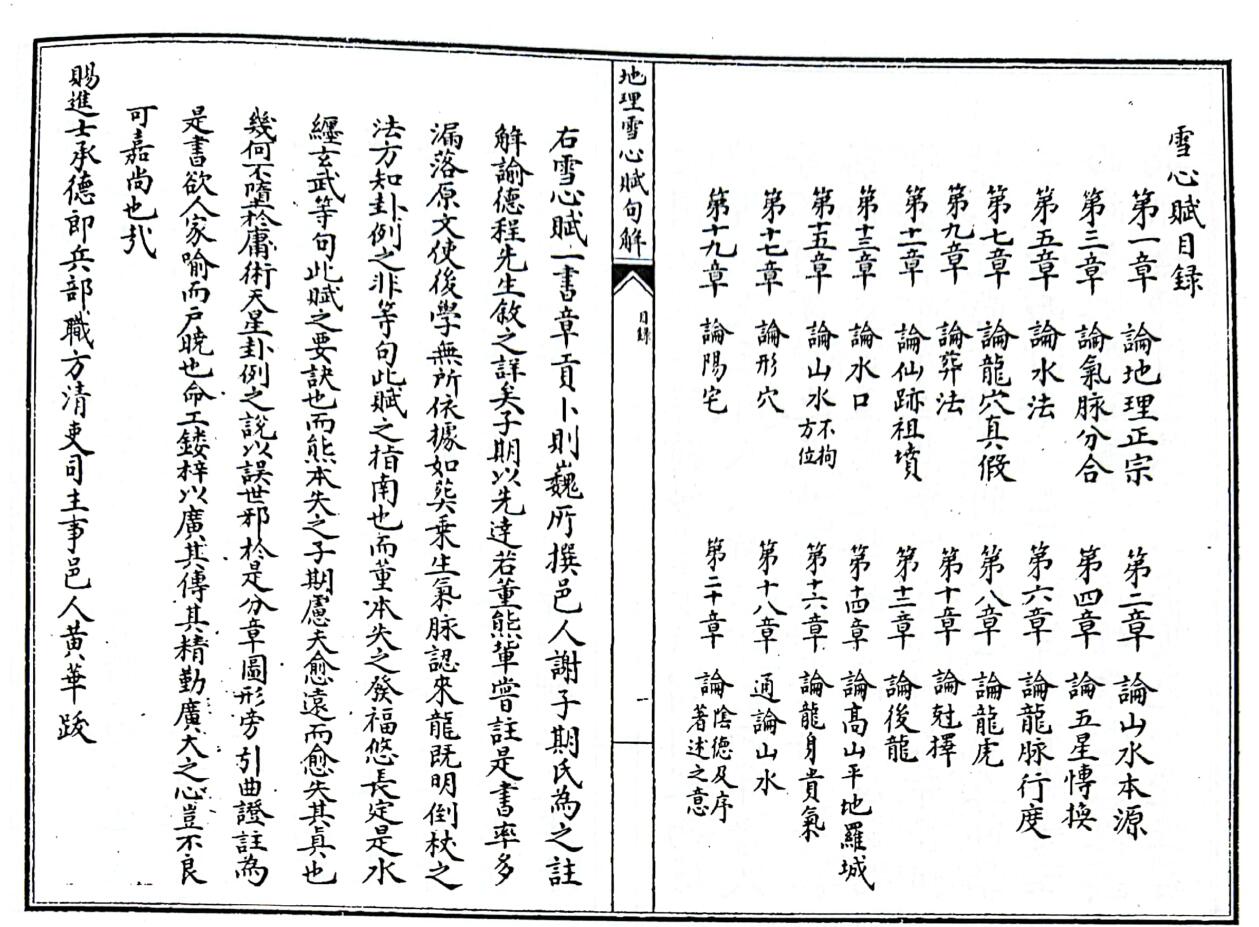 雪心賦目錄
第一章 論地理正宗 第二章 論山水本源
第三章 論氣脉分合 第四章 論五星傳換
第五章 論水法 第六章 論龍脉行度
第七章 論龍穴真假 第八章 論龍虎
第九章 論葬法 第十章 論尅擇
第十一章 論仙跡祖墳 第十二章 論後龍
第十三章 論水口 第十四章 論高山平地羅城
第十五章 論山水不拘方位 第十六章 論龍身貴氣
第十七章 論形穴 第十八章 通論山水
第十九章 論陽宅 第二十章 論陰德及序著述之意
地理雪心賦句解 目錄 一
右雪心賦一書章貢卜則巍所撰邑人謝子期氏為之註
解諭德程先生敘之詳矣子期以先達若董熊輩嘗註是書率多
漏落原文使後學無所依據如葬乗生氣脉認來龍既明倒杖之
法方知卦例之非等句此賦之指南也而董本失之發福悠長定是水
纏玄武等句此賦之要訣也而熊本失之子期慮夫愈遠而愈失其真也
幾何不墮於庸術天星卦例之說以誤世邪於是分章圖形旁引曲證註為
是書欲人家喻而戶曉也命工鏤梓以廣其傳其精勤廣大之心豈不良
可嘉尚也哉
賜進士承德郎兵部職方清吏司主事邑人黃華跋